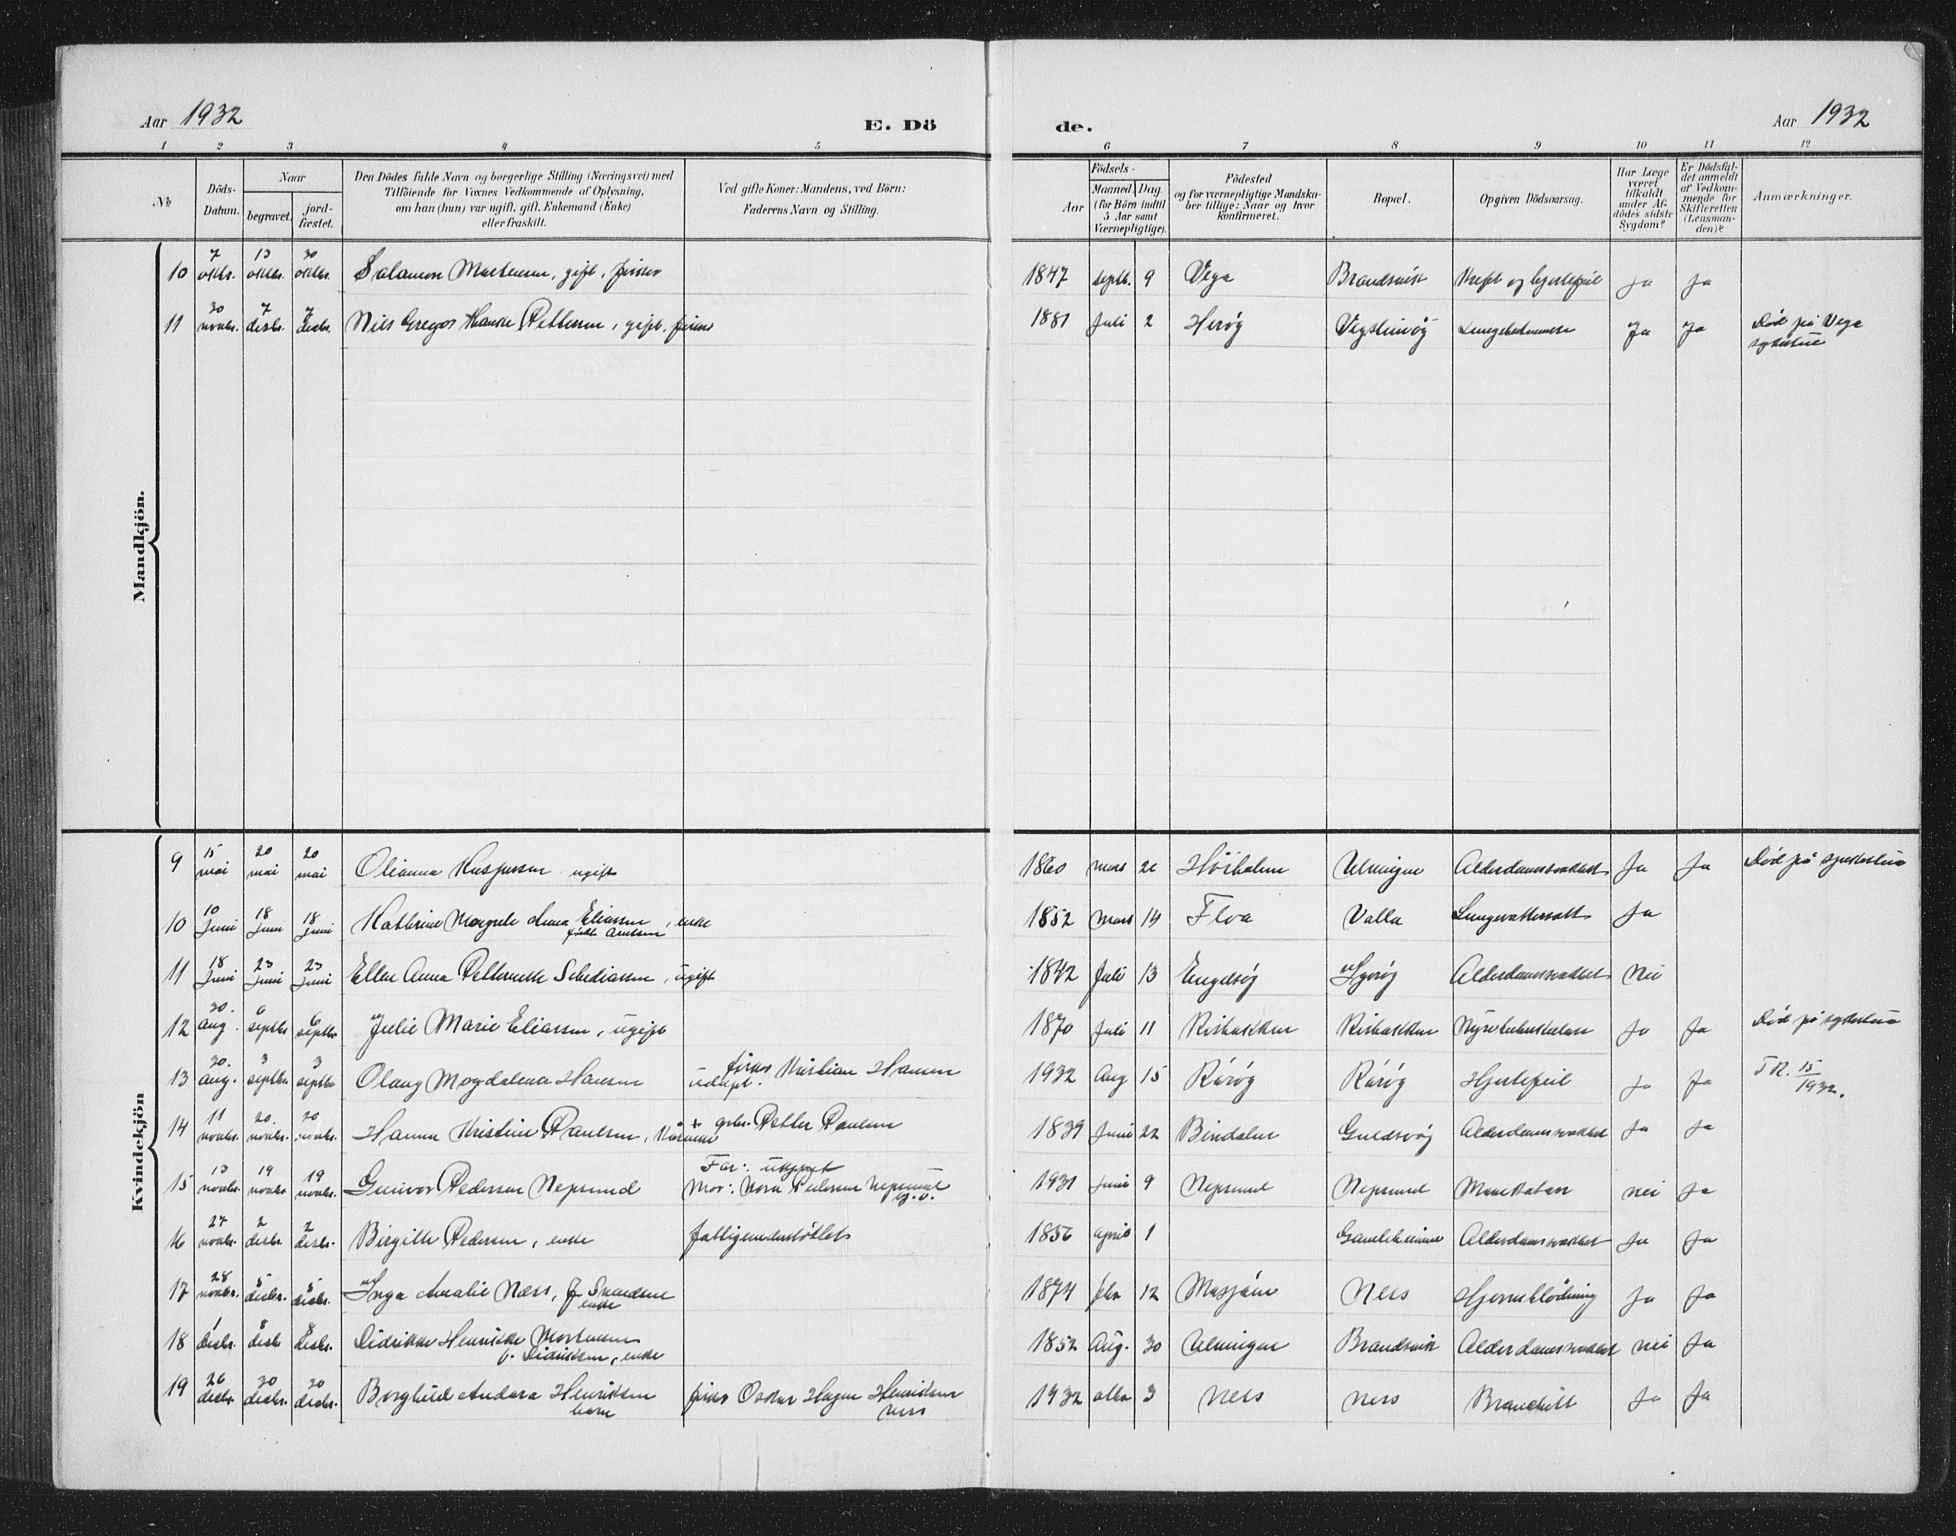 Aar 1932
E. Dö
de.
Aar 1932
1 2 3 4 5 6 7 8 9 10 11 12
№
Döds-
Datum.
Naar
begravet.
jord-
fæstet.
Den Dödes fulde Navn og borgerlige Stilling (Næringsvei) med
Tilföiende for Voxnes Vedkommende af Oplysning,
om han (hun) var ugift, gift, Enkemand (Enke)
eller fraskilt.
Ved gifte Koner: Mandens, ved Börn:
Faderens Navn og Stilling.
Födsels-
Aar
Maaned. Dag.
(for Börn indtil
5 Aar samt
Værnepligtige).
Födested
og for værnepligtige Mandska-
ber tillige: Naar og hvor
konfirmeret.
Bopæl.
Opgiven Dödsaarsag.
Har Læge
været
tilkaldt
under Af-
dödes sidste
Sygdom?
Er Dödsfal-
det anmeldt
af Vedkom-
mende for
Skifteretten
(Lensman-
den)?
Anmærkninger.
Mandkjön.
10 7 oktbr. 13 oktbr. 30 oktbr. Salamon Martensen, gift, fisker 1847 septb. 9 Vega Brandsvik Kreft og hjertefeil Ja Ja
11 30 novbr. 7 desbr. 7 desbr. Nils Gregor Pettersen, gift, fisker 1881 Juli 2 Herøy Vegsteinøy Ja Ja Død på Vega
sykestue
Kvindekjön
9 15 mai 20 mai 20 mai Olianna Kaspersen ugift 1860 mars Høiholmen Ulvingen Alderdomssvakhet Ja Ja Død på sykestua
10 10 Juni 18 Juni 18 Juni Kathrine Margrete Anna Eliassen, enke
født Arntsen 1852 mars 14 Floa Valla Ja
11 18 Juni 23 Juni 23 Juni Ellen Anna, ugift 1842 Juli 13 Engelsøy Alderdomssvakhet nei
12 30. Aug. 6 septbr 6 septbr Julie Marie Eliassen, ugift 1870 Juli 11 Ja Ja Død på sykestua
13 30. Aug. 3 septbr 3 septbr Olaug Magdalena Hansen udøpt. fisker Kristian Hansen 1932 Aug 15 Rørøy Rørøy Hjertefeil Ja Ja 15
1932.
14 11 novbr. 20. novbr. 20 novbr. Hanna Kristine Paulsen, Petter Paulsen 1839 Juni 22 Bindalen Guldsvåg Alderdomssvakhet Ja Ja
15 13 novbr. 19 novbr 19 novbr. Gunvor Pedersen Nepsund Far: ukjent
Mor: Nora Pedersen Nepsund 1931 Juni 9 Nepsund Nepsund nei Ja
16 27 novbr. 2 desbr 2 desbr. Birgitte Pedersen, enke fattigunderstøttet 1856 april 1 Gamleheimen Alderdomssvakhet Ja Ja
17 28 novbr. 5 desbr. 5 desbr. Inga Amalie Næss, f. Svendsen
enke 1874 febr 12 Mosjøen Nes Hjerneblødning Ja Ja
18 1 desbr. 8 desbr 8 desbr. Didrikke Henrikke Mortensen
f. Didriksen, enke 1852 Aug. 30 Ulvingen Brandsvik Alderdomssvakhet nei Ja
19 26 desbr. 30 desbr. 30 desbr. Borghild Andora Henriksen
barn fisker Oskar Hagen Henriksen
Nes 1932 3 Nes Nes Ja Ja